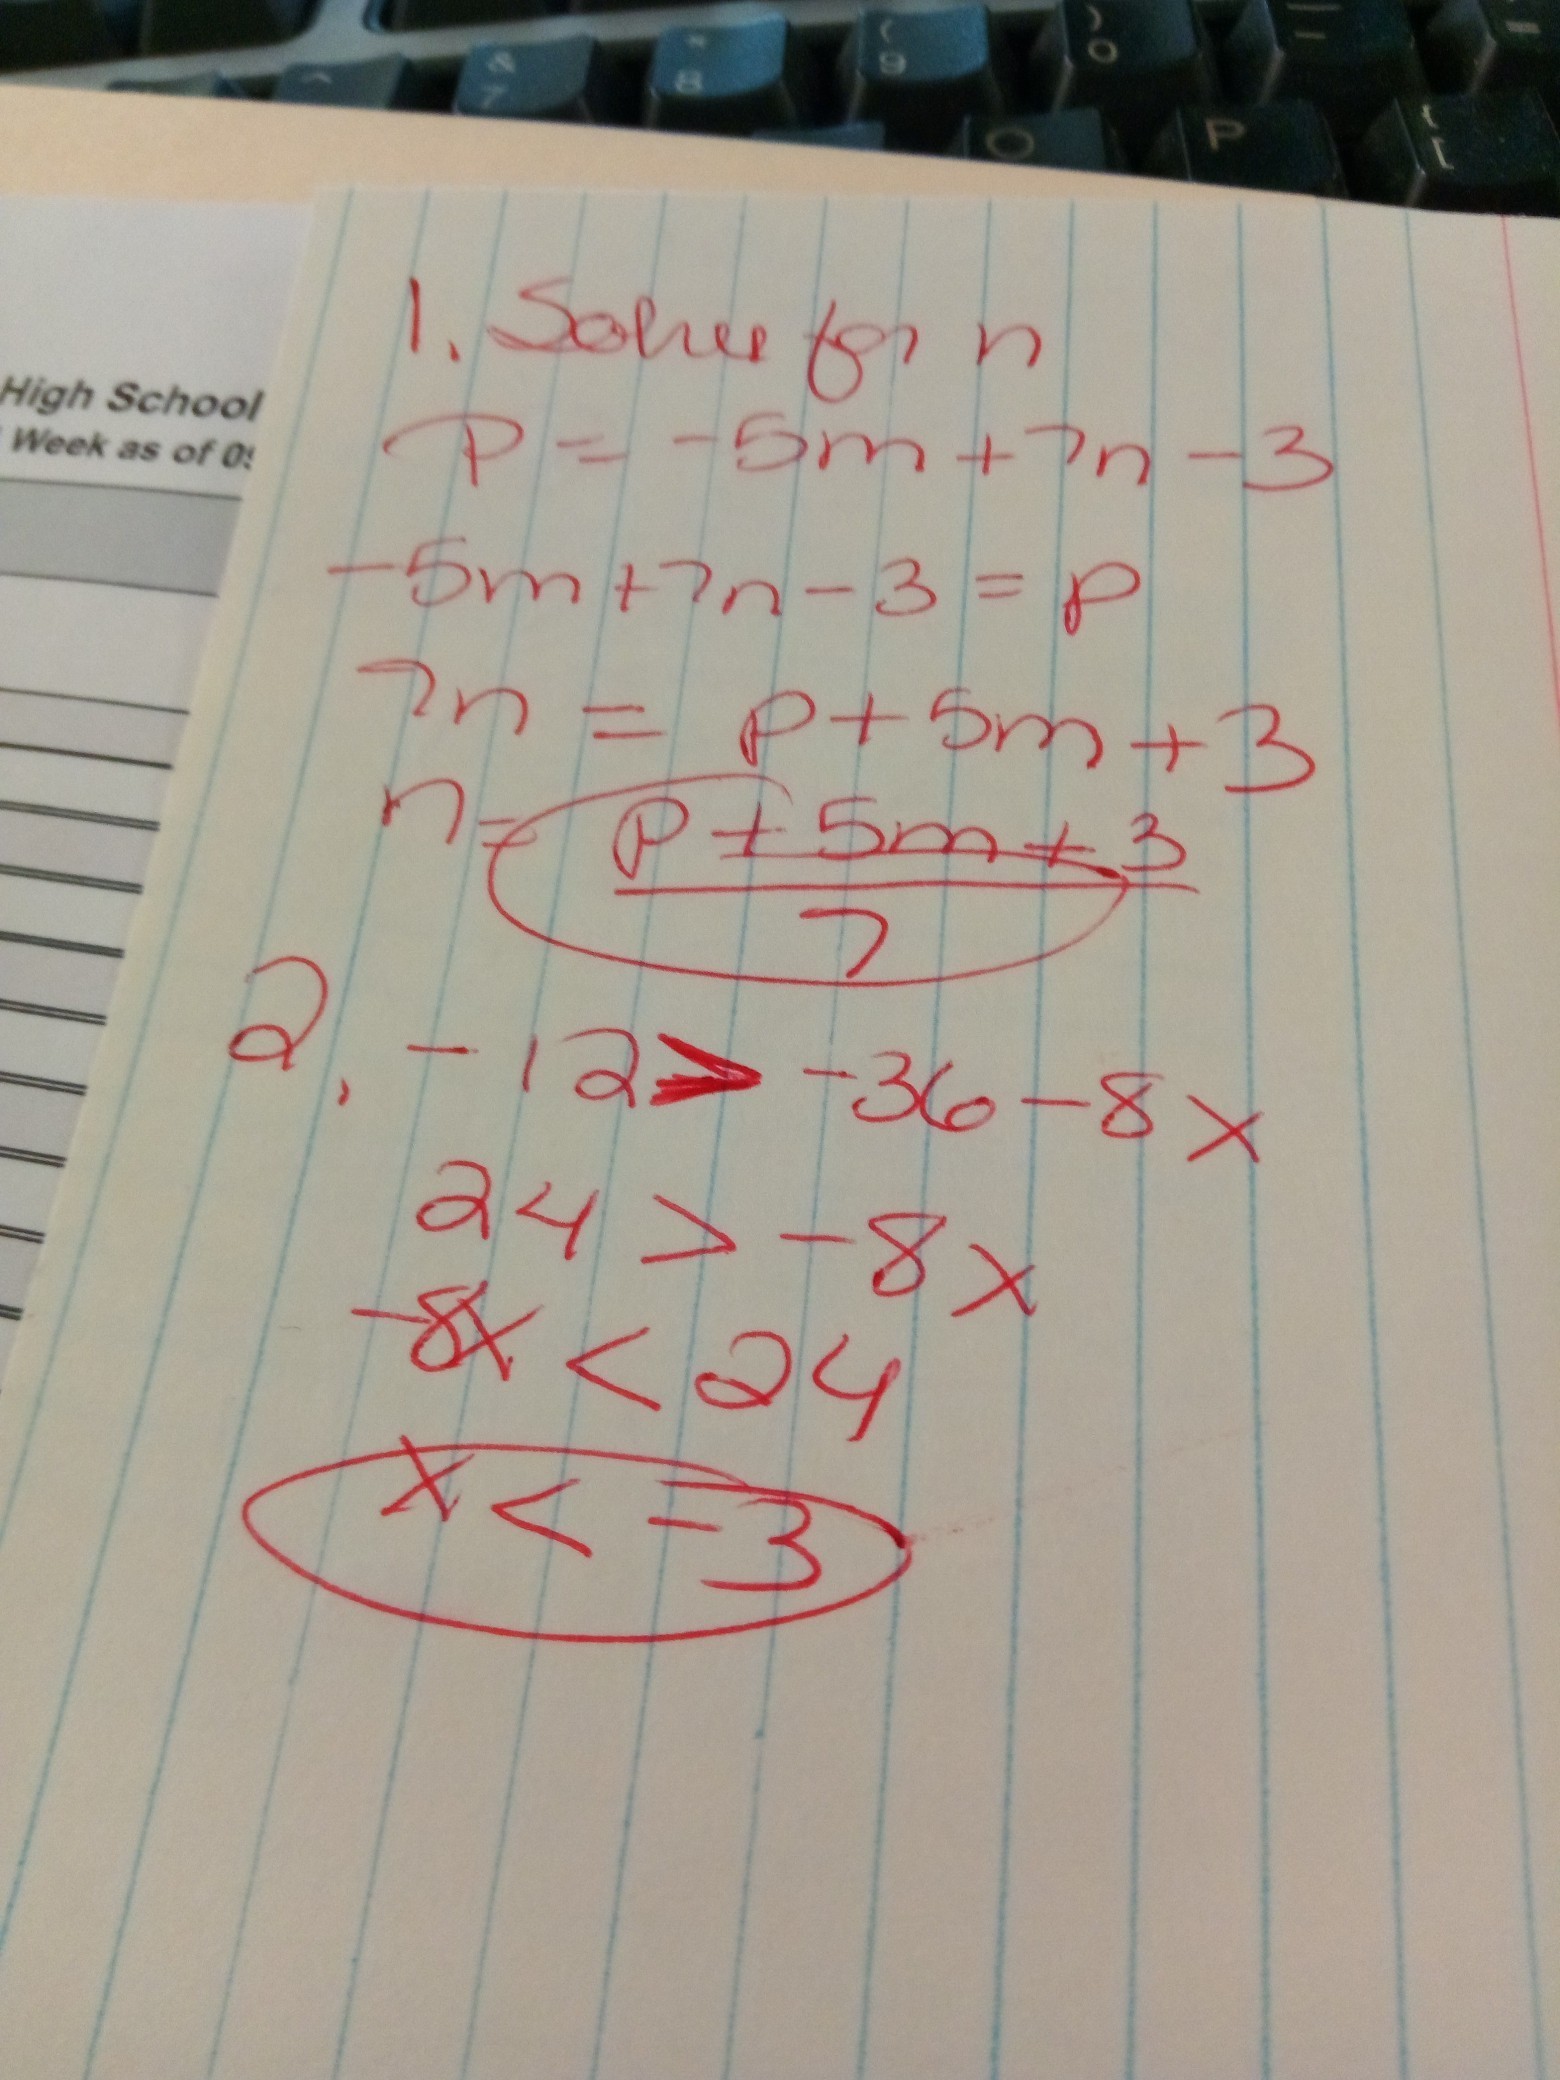 & 7
* 8
( 9
) 0
O
P
{ [
High School
Week as of 0
1. Solve for n
P = -5m + 7n - 3
-5m + 7n - 3 = p
7n = p + 5m + 3
n = p + 5m + 3
7
2. -12 > -36 - 8x
24 > -8x
-8x < 24
x < -3